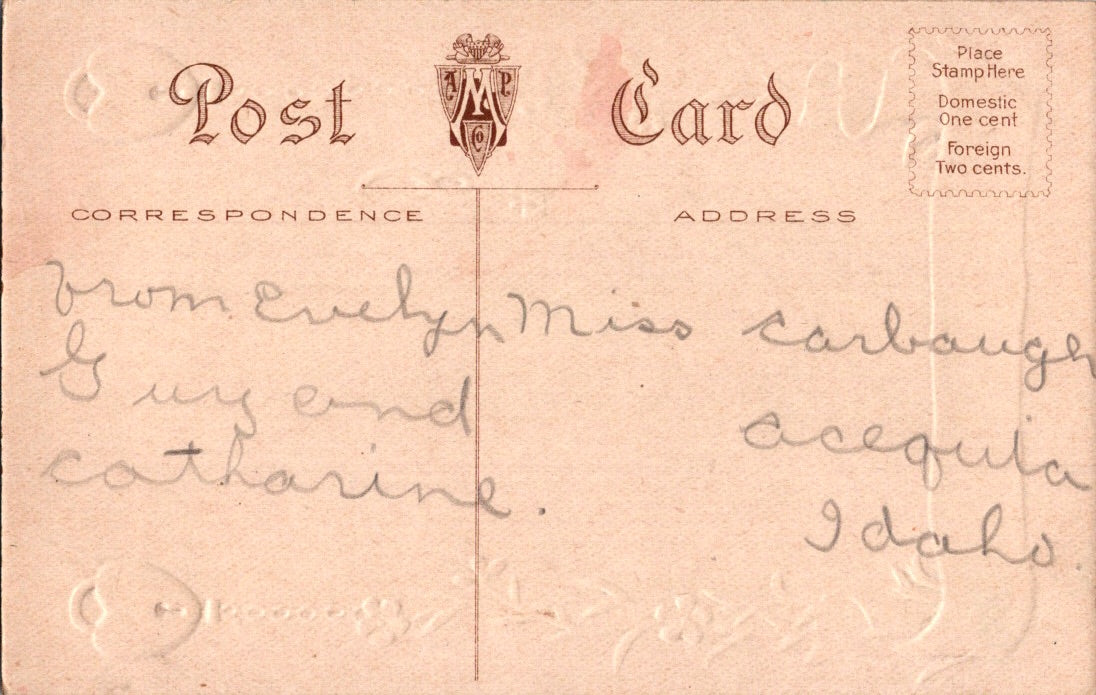 Post Card
A M P Co
Place
Stamp Here
Domestic
One cent
Foreign
Two cents.
CORRESPONDENCE
ADDRESS
from Evelyn
Guy and
catharine.
Miss carbaugh
acequia
Idaho.